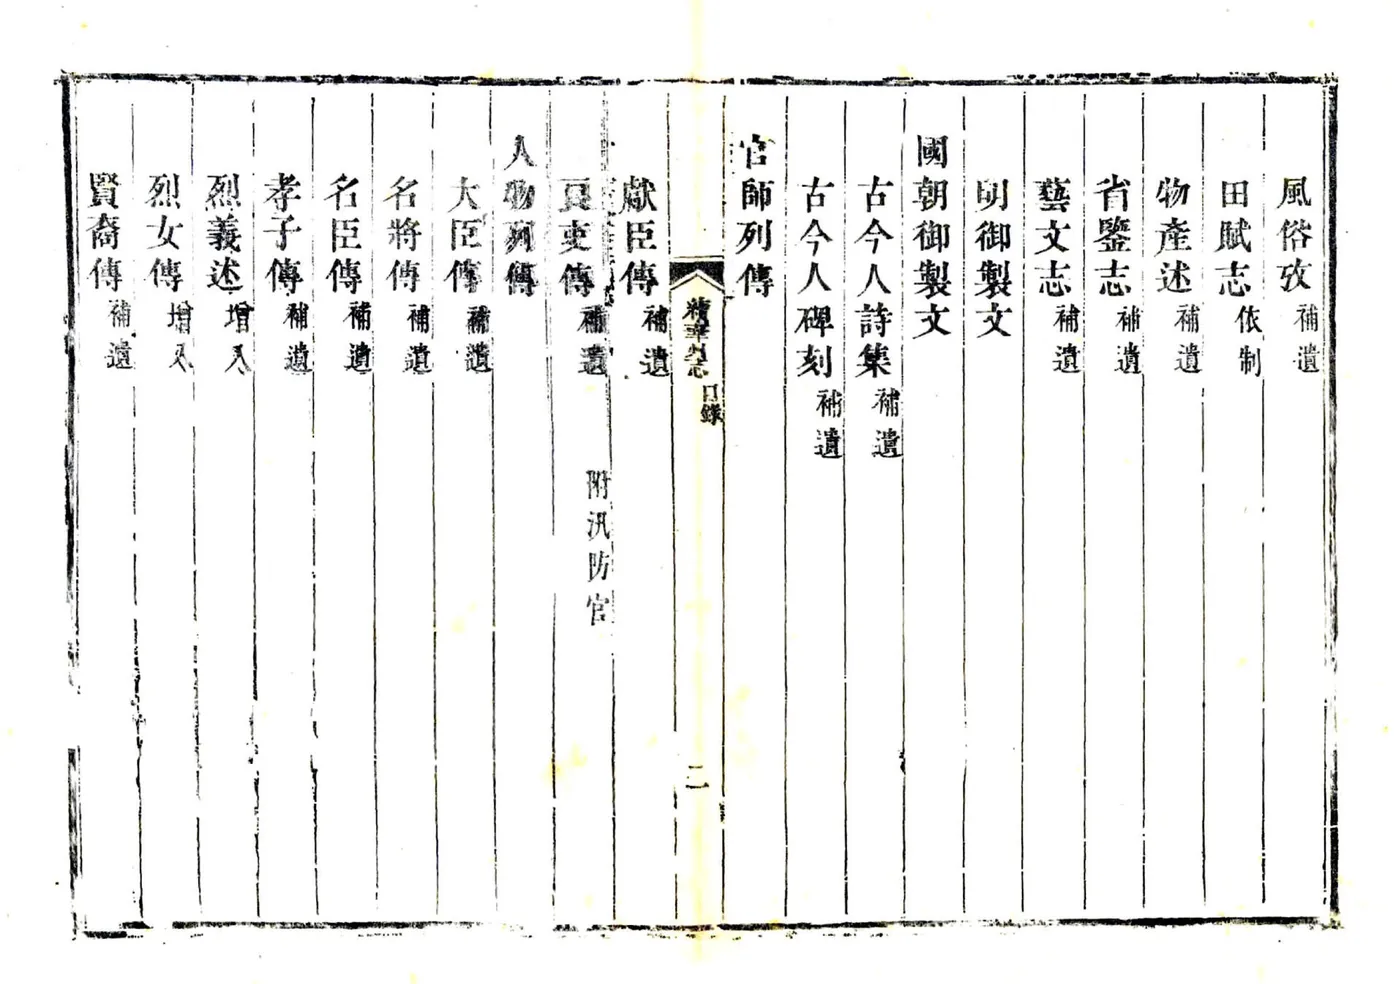 風俗攷補遺
田賦志依制
物產述補遺
省鑒志補遺
藝文志補遺
明御製文
國朝御製文
古今人詩集補遺
古今人碑刻補遺
官師列傳
續華州志 目錄 二
獻臣傳補遺
良吏傳補遺 附汛防官
人物列傳
大臣傳補遺
名將傳補遺
名臣傳補遺
孝子傳補遺
烈義述增入
烈女傳增入
賢裔傳補遺